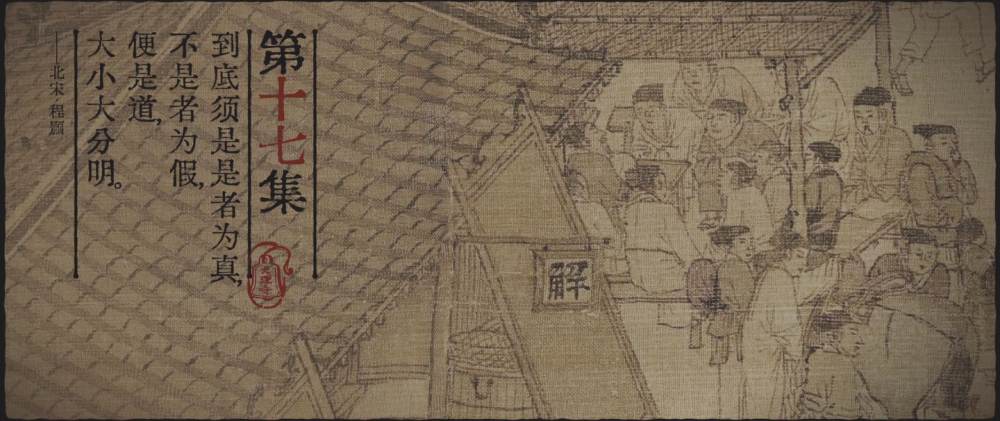 第十七集
到底须是是者为真,
不是者为假,
便是道,
大小大分明。
——北宋 程颢
解